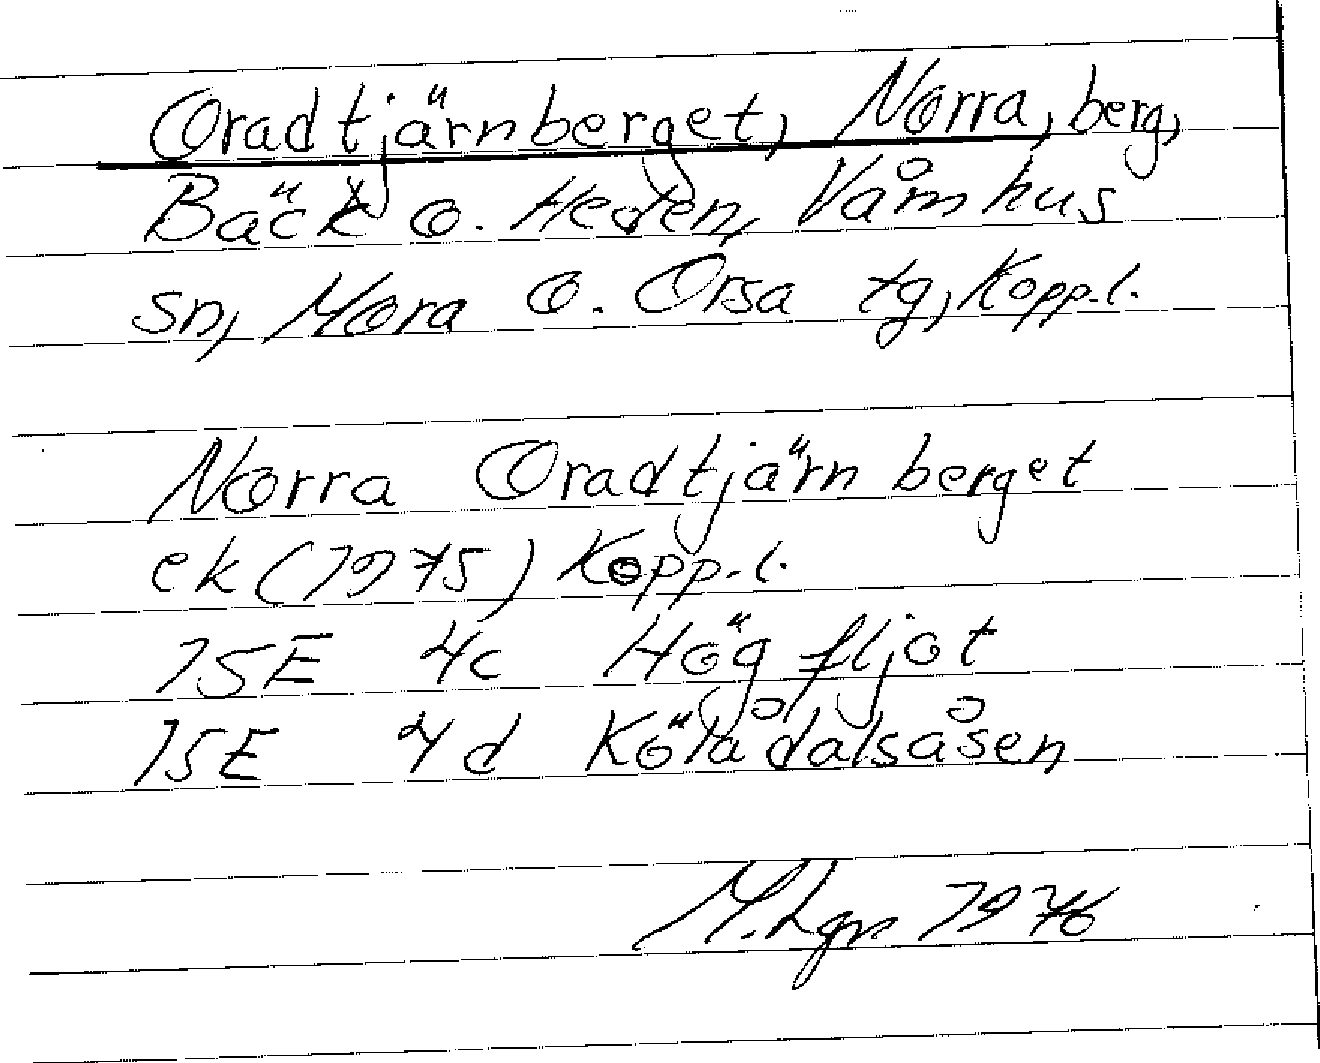 Oradtjärnberget, Norra, berg,
Bäck o. Heden, Våmhus
sn, Mora o. Orsa tg, Kopp.l.
Norra Oradtjärnberget
ek (1975) Kopp.l.
15E 4c Högfljot
15E 4d Kölådalsåsen
M.Lgn 1976